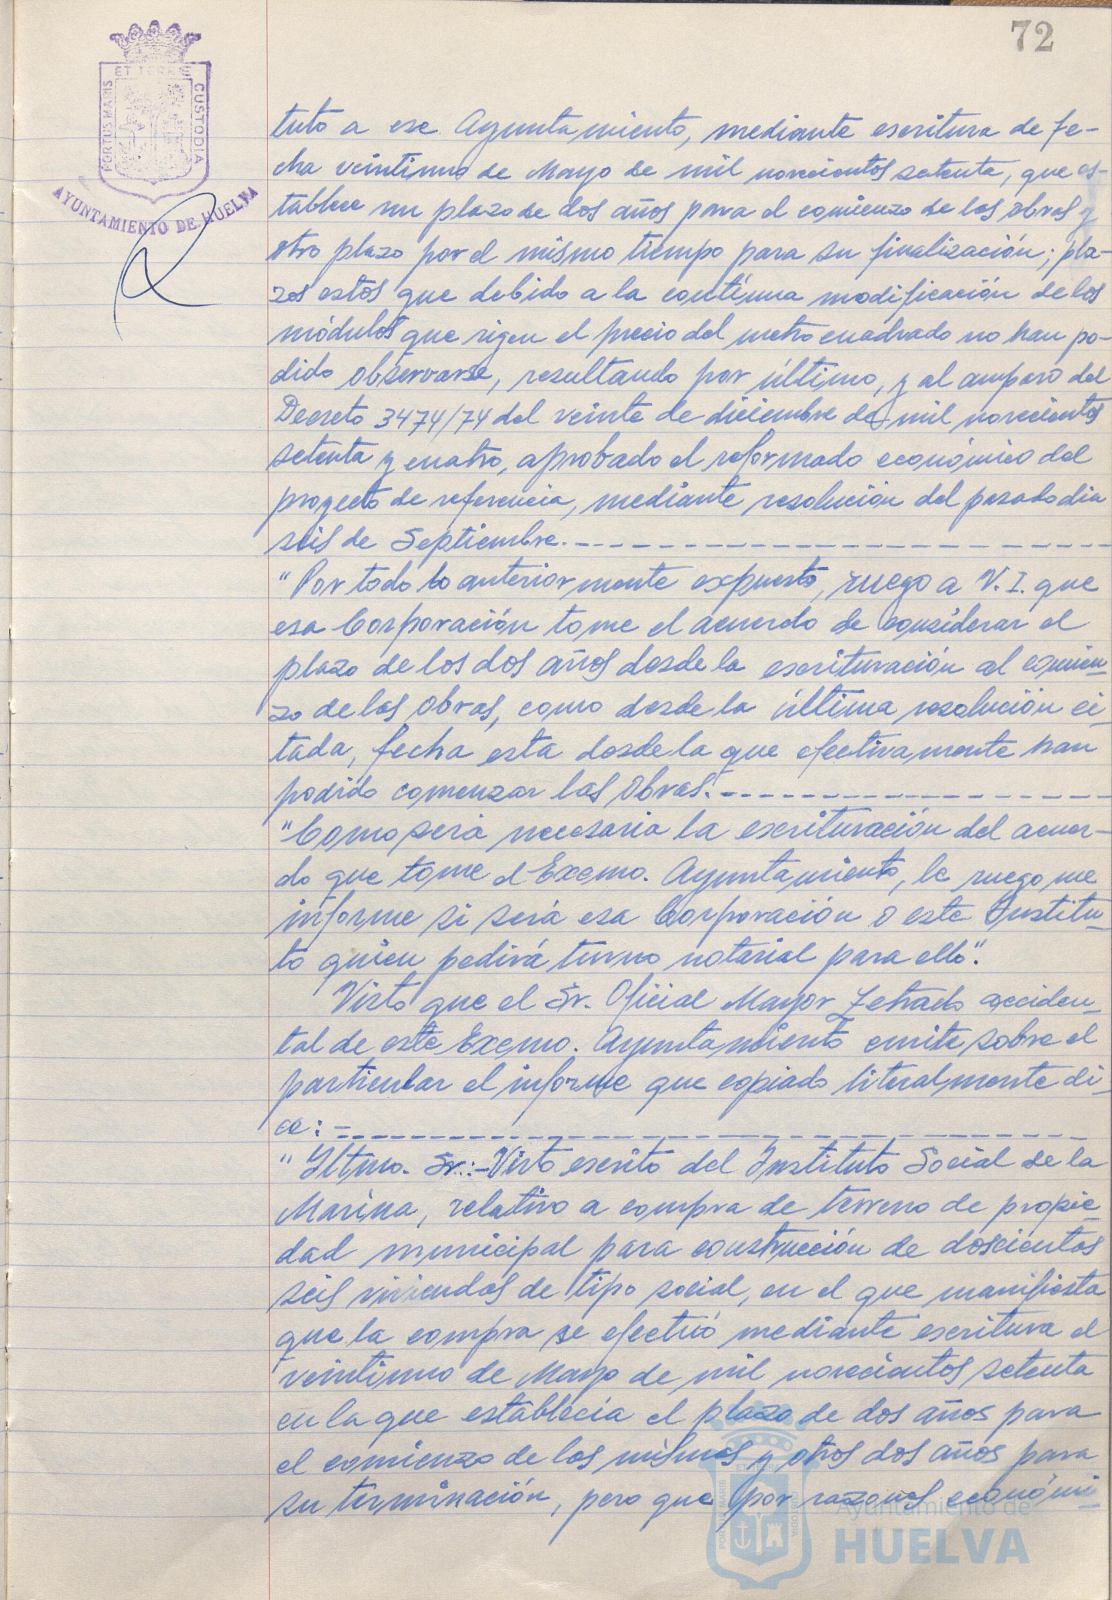 72
PORTUS MARIS ET TERRAE CUSTODIA
AYUNTAMIENTO DE HUELVA
tuto a ese Ayuntamiento, mediante escritura de fe-
cha veintinuo de Mayo de mil novecientos setenta, que es-
tablece un plazo de dos años para el comienzo de las obras y
otro plazo por el mismo tiempo para su finalización; pla-
zos estos que debido a la contínua modificación de los
módulos que rigen el precio del metro cuadrado no han po-
dido observarse, resultando por último, y al amparo del
Decreto 3474/74 del veinte de diciembre de mil novecientos
setenta y cuatro, aprobado el reformado económico del
proyecto de referencia, mediante resolución del pasado dia
seis de Septiembre.
"Por todo lo anteriormente expuesto, ruego a V.I. que
esa Corporación tome el acuerdo de considerar el
plazo de los dos años desde la escrituración al comien-
zo de las obras, como desde la última resolución ci-
tada, fecha esta desde la que efectivamente han
podido comenzar las obras.
"Como será necesaria la escrituración del acuer-
do que tome el Excmo. Ayuntamiento, le ruego me
informe si será esa Corporación o este Institu-
to quien pedirá turno notarial para ello".
Visto que el Sr. Oficial Mayor Letrado acciden-
tal de este Excmo. Ayuntamiento emite sobre el
particular el informe que copiado literalmente di-
ce: -
"Iltmo. Sr.:- Visto escrito del Instituto Social de la
Marina, relativo a compra de terreno de propie-
dad municipal para construcción de doscientos
seis viviendas de tipo social, en el que manifiesta
que la compra se efectuó mediante escritura el
veintinuo de Mayo de mil novecientos setenta
en la que establecía el plazo de dos años para
el comienzo de las mismas y otros dos años para
su terminación, pero que por razones económi-
Ayuntamiento de
HUELVA